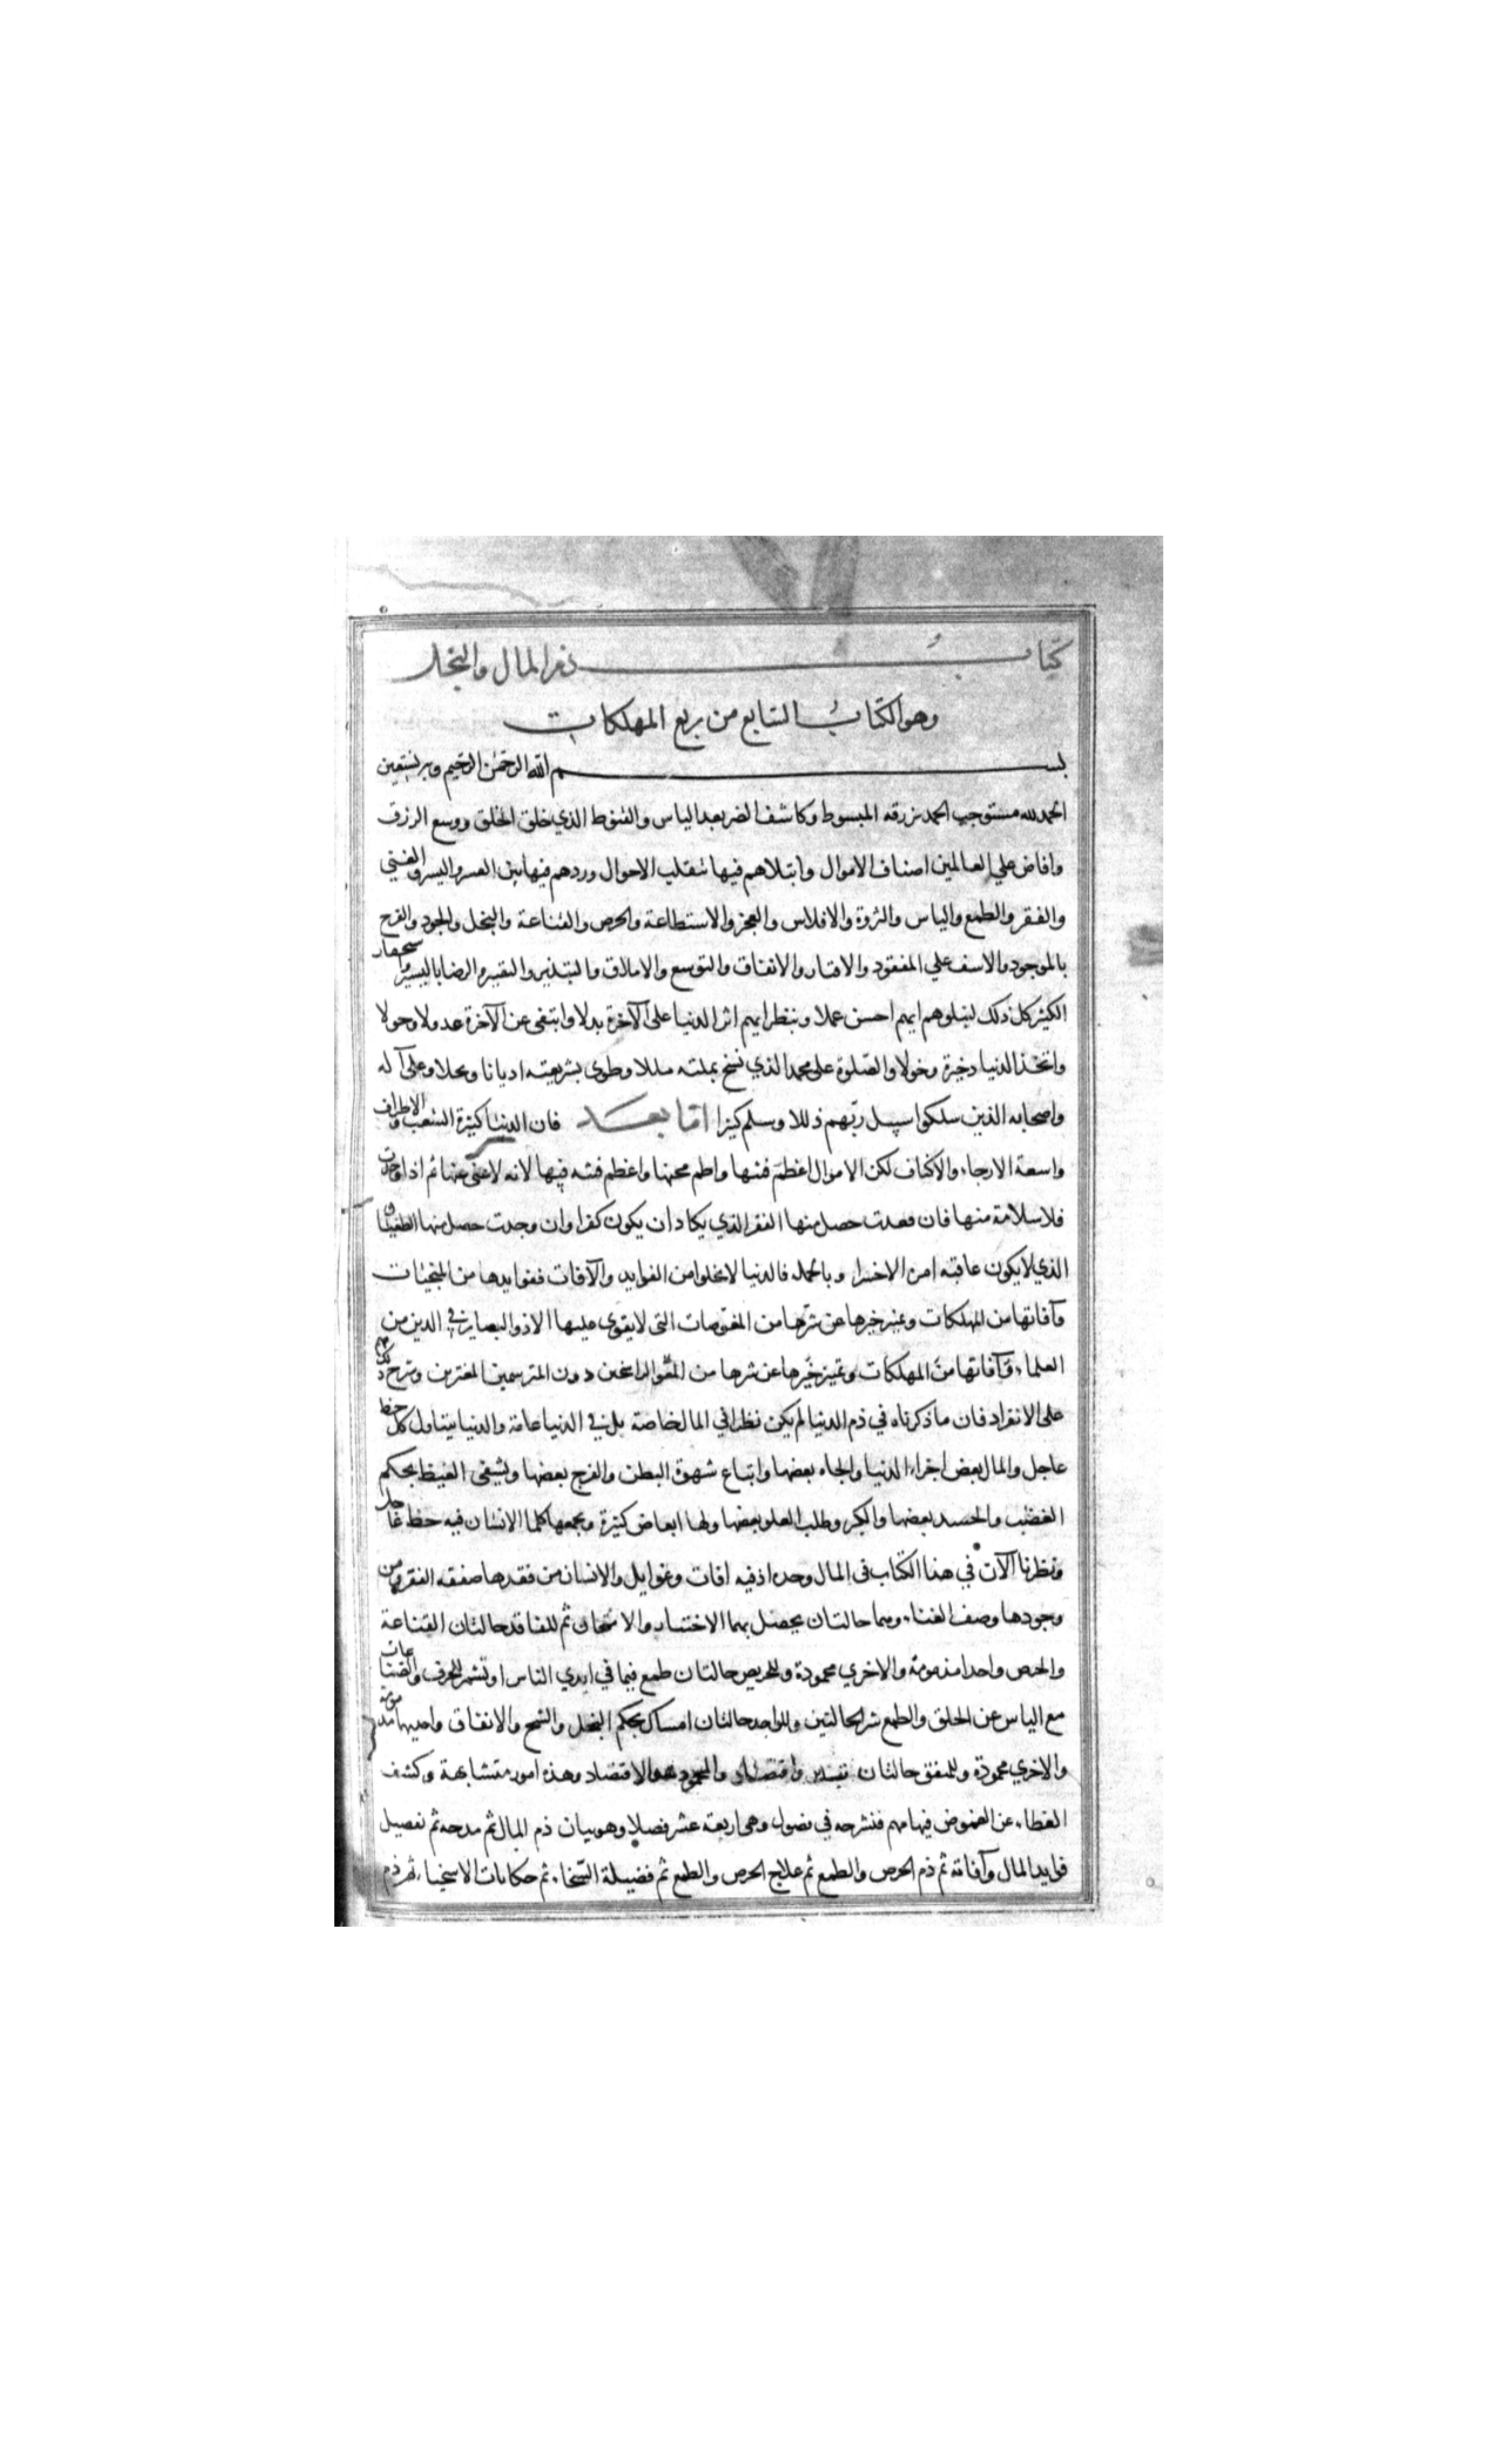 كتاب ذم المال والبخل
وهو الكتاب السابع من ربع المهلكات
بسم الله الرحمن الرحيم وبه نستعين
الحمد لله مستوجب الحمد برزقه المبسوط وكاشف الضر بعد الياس والقنوط الذي خلق الخلق ووسع الرزق
وافاض علي العالمين اصناف الاموال وابتلاهم فيها بتقلب الاحوال ورددهم فيها بين العسر واليسر والغني
والفقر والطمع والياس والثروة والافلاس والعجز والاستطاعة والحرص والقناعة والبخل والجود والفرح
بالموجود والاسف علي المفقود والاقتار والانفاق والتوسع والاملاق والتبذير والتقتير والرضا باليسير واستحقار
الكثير كل ذلك لنبلوهم ايهم احسن عملا وننظر ايهم اثر الدنيا على الآخرة بدلا وابتغى عن الآخرة عدولا وحولا
واتخذ الدنيا دخيرة وخولا والصلوة على محمد الذي نسخ بملته مللا وطوى بشريعته اديانا ونحلا وعلى آله
واصحابه الذين سلكوا سبيل ربهم ذللا وسلم كثيرا اما بعد فان الدنيا كثيرة الشعب والاطراف
واسعة الارجاء والاكناف لكن الاموال اعظم فتنها واطم محنها واعظم فتنه فيها لانه لاغنى عنها ثم اذا وجدت
فلا سلامة منها فان فقدت حصل منها الفقر الذي يكاد ان يكون كفرا وان وجدت حصل منها الطغيان
الذي لا يكون عاقبة امره الا خسرا وبالجملة فالدنيا لا تخلوا من الفوايد والآفات ففوايدها من المنجيات
وآفاتها من المهلكات وتمييز خيرها عن شرها من المعوصات التى لا يقوى عليها الا ذوالبصاير في الدين من
العلماء وآفاتها من المهلكات وتمييز خيرها عن شرها من الراسخين دون المترسمين المغترين وشرح ذلك مهم
على الانفراد فان ما ذكرناه في ذم الدنيا لم يكن نظرا في المال خاصة بل في الدنيا عامة والدنيا يتناول كل حظ
عاجل والمال بعض اجزاء الدنيا والجاه بعضها واتباع شهوة البطن والفرج بعضها وتشفى الغيظ بحكم
الغضب والحسد بعضها والكبر وطلب العلو بعضها ولها ابعاض كثيرة ويجمعها كلما للانسان فيه حظ عاجل
ونظرنا الآن في هذا الكتاب فى المال وحده اذ فيه افات وغوايل والانسان من فقدها صفة الفقر ومن
وجودها وصف الغناء وهما حالتان يحصل بهما الاختبار والامتحان ثم للفاقد حالتان القناعة
والحرص واحدا مذمومة والاخري محمودة وللحريص حالتان طمع فيما في ايدي الناس او تشمر للحرف والصناعات
مع الياس عن الخلق والطمع شر الحالتين وللواجد حالتان امساك بحكم البخل والشح والانفاق واحديهما مذمومة
والاخري محمودة وللمنفق حالتان تبذير واقتصاد والمحمود هو الاقتصاد وهذه امور متشابهة وكشف
الغطاء عن الغموض فيها مهم فنشرحه في فصول وهى اربعة عشر فصلا وهو بيان ذم المال ثم مدحه ثم تفصيل
فوايد المال وآفاته ثم ذم الحرص والطمع ثم علاج الحرص والطمع ثم فضيلة السخاء ثم حكايات الاسخياء ثم ذم